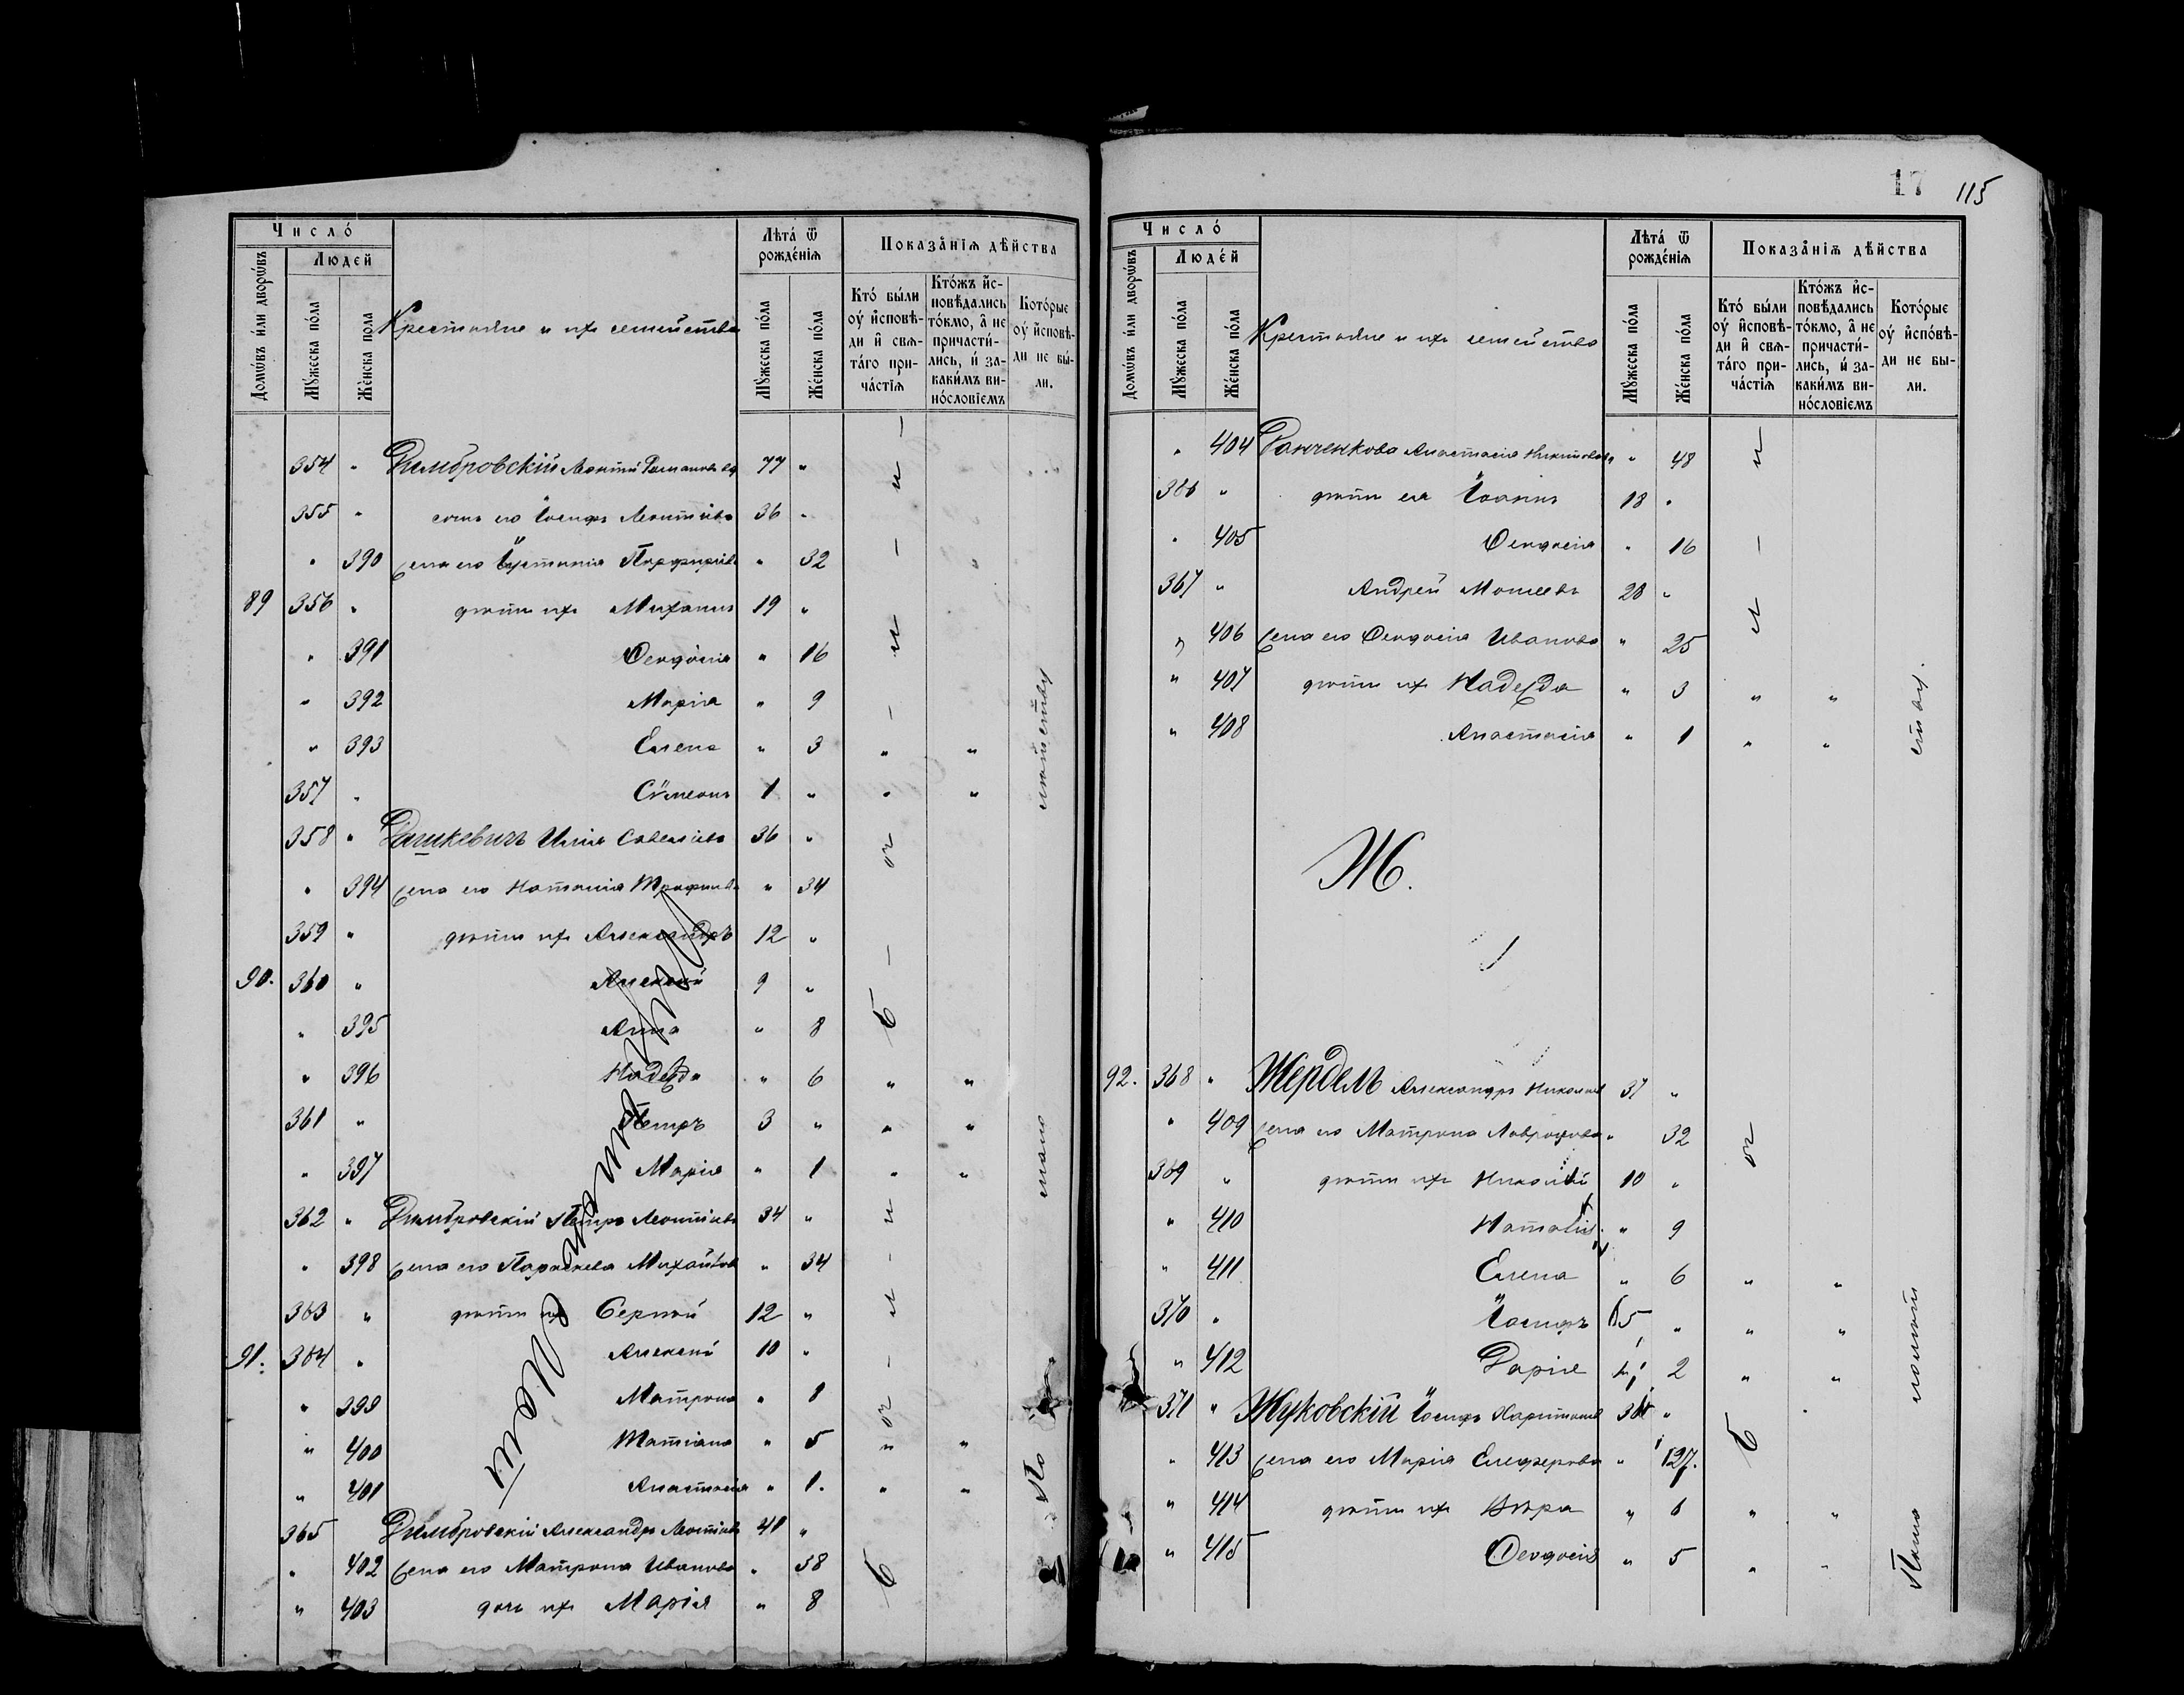 Число́
Людей
Домѡ́въ и́ли дворѡ́въ
Мꙋ́жеска по́ла
Же́нска по́ла
Крестьяне и ихъ семейства
Лѣта́ ѿ рожде́нїѧ
Мꙋ́жеска по́ла
Же́нска по́ла
Показа̑нїѧ дѣ́йства
Кто́ бы́ли оу҆ и҆сповѣ-
ди и҆ свѧ-
та́го при-
ча́стїѧ
Кто́жъ и҆с-
повѣ́дались
то́кмо, а҆ не
причасти́-
лись, и҆ за-
каки́мъ ви-
но́словїемъ
Кото́рые
оу҆ и҆сповѣ́-
ди не бы́-
ли.
354 " Димбровскій Леонтій Романовъ вд 77 "
355 " сынъ его Іосифъ Леонтіевъ 36 "
" 390 жена его Іустинія Порфиріева " 32
89 356 " дѣти ихъ Михаилъ 19 "
" 391 Ѳеодосія " 16
" 392 Марія " 9
" 393 Елена " 3 " "
357 " Сѵмеонъ 1 " " "
358 " Дашкевичъ Илія Савеліевъ 36 "
" 394 жена его Наталія " 34
359 " дѣти ихъ Александръ 12 "
90. 360 " Алексій 9 "
" 395 Анна " 8
" 396 Надежда " 6 " "
361 " Петръ 3 " " "
" 397 Марія " 1 " "
362 " Димбровскій Петръ Леонтіевъ 34 "
" 398 жена его Параскева Михайлова " 34
363 " дѣти ихъ Сергій 12 "
91. 364 " Алексій 10 "
" 399 Матрона " 8
" 400 Татіана " 5 " "
" 401 Анастасія " 1. " "
365 Димбровскій Александръ Леонтіевъ 41 "
" 402 жена его Матрона Иванова " 38
" 403 дочь ихъ Марія " 8
По мало лѣтству
17
115
Число́
Людей
Домѡ́въ и́ли дворѡ́въ
Мꙋ́жеска по́ла
Же́нска по́ла
Крестьяне и ихъ семейства
Лѣта́ ѿ рожде́нїѧ
Мꙋ́жеска по́ла
Же́нска по́ла
Показа̑нїѧ дѣ́йства
Кто́ бы́ли
оу҆ и҆сповѣ-
ди и҆ свѧ-
та́го при-
ча́стїѧ
Кто́жъ и҆с-
повѣ́дались
то́кмо, а҆ не
причасти́-
лись, и҆ за-
каки́мъ ви-
но́словїемъ
Кото́рые
оу҆ и҆сповѣ́-
ди не бы́-
ли.
" 404 Ранченкова Анастасія Никитова " 48
366 " дѣти ея Іоаннъ 18 "
" 405 Ѳеодосія " 16
367 " Андрей Моисеевъ 28 "
" 406 жена его Ѳеодосія Иванова " 25
" 407 дѣти ихъ Надежда " 3 " "
" 408 Анастасія " 1 " "
Ж.
92. 368 " Жердель Александръ Николаевъ 37 "
" 409 жена его Матрона " 32
369 " дѣти ихъ Николай 10 "
" 410 Наталія " 9
" 411 Елена " 6 " "
370 " Іосифъ 5 " " "
" 412 Дарія 2 " "
371 " Жуковскій Іосифъ Харитоновъ "
" 413 жена его Марія Елеѳерова " 27.
" 414 дѣти ихъ Вѣра " 6 " "
" 415 Ѳеодосія " 5 " "